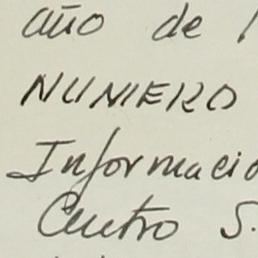 año de
NUMERO
Informació
Centro S.